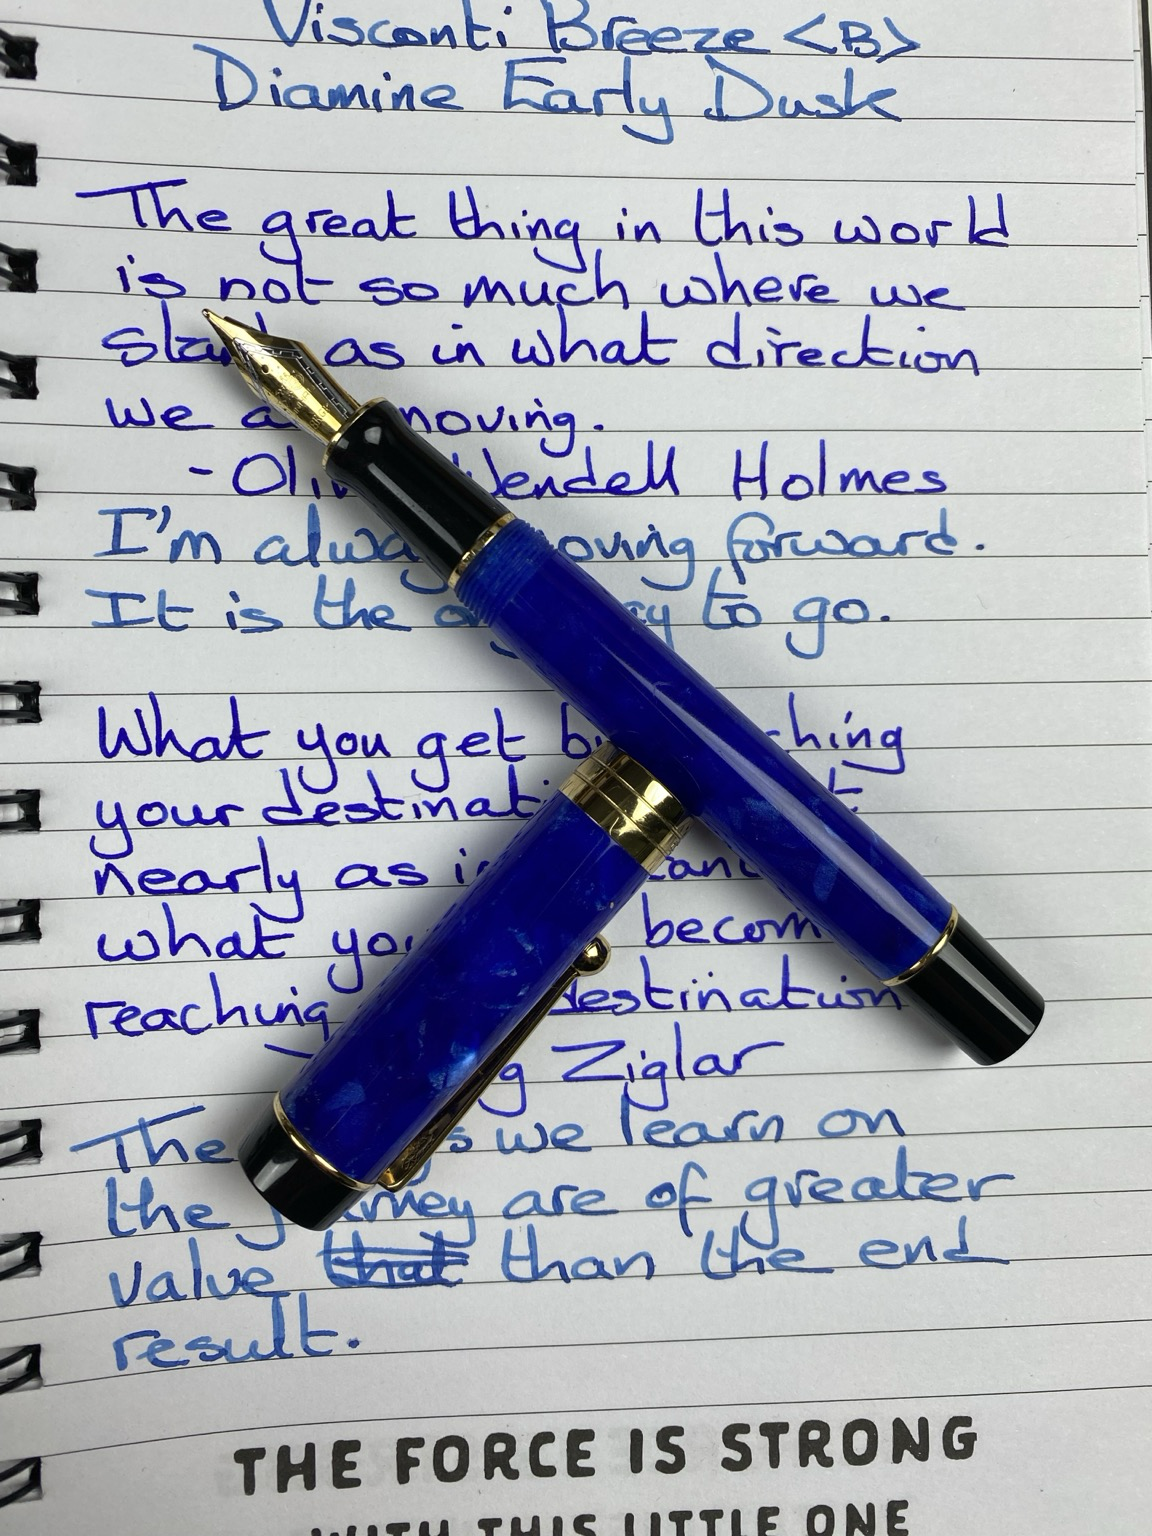 Visconti Breeze <B>
Diamine Early Dusk
The great thing in this world
is not so much where we
as in what direction
we moving.
- Wendell Holmes
I'm moving forward.
It is the to go.
What you get
your
nearly as
what
reaching destination
Ziglar
The we learn on
the journey are of greater
value that than the end
result.
THE FORCE IS STRONG
WITH THIS LITTLE ONE